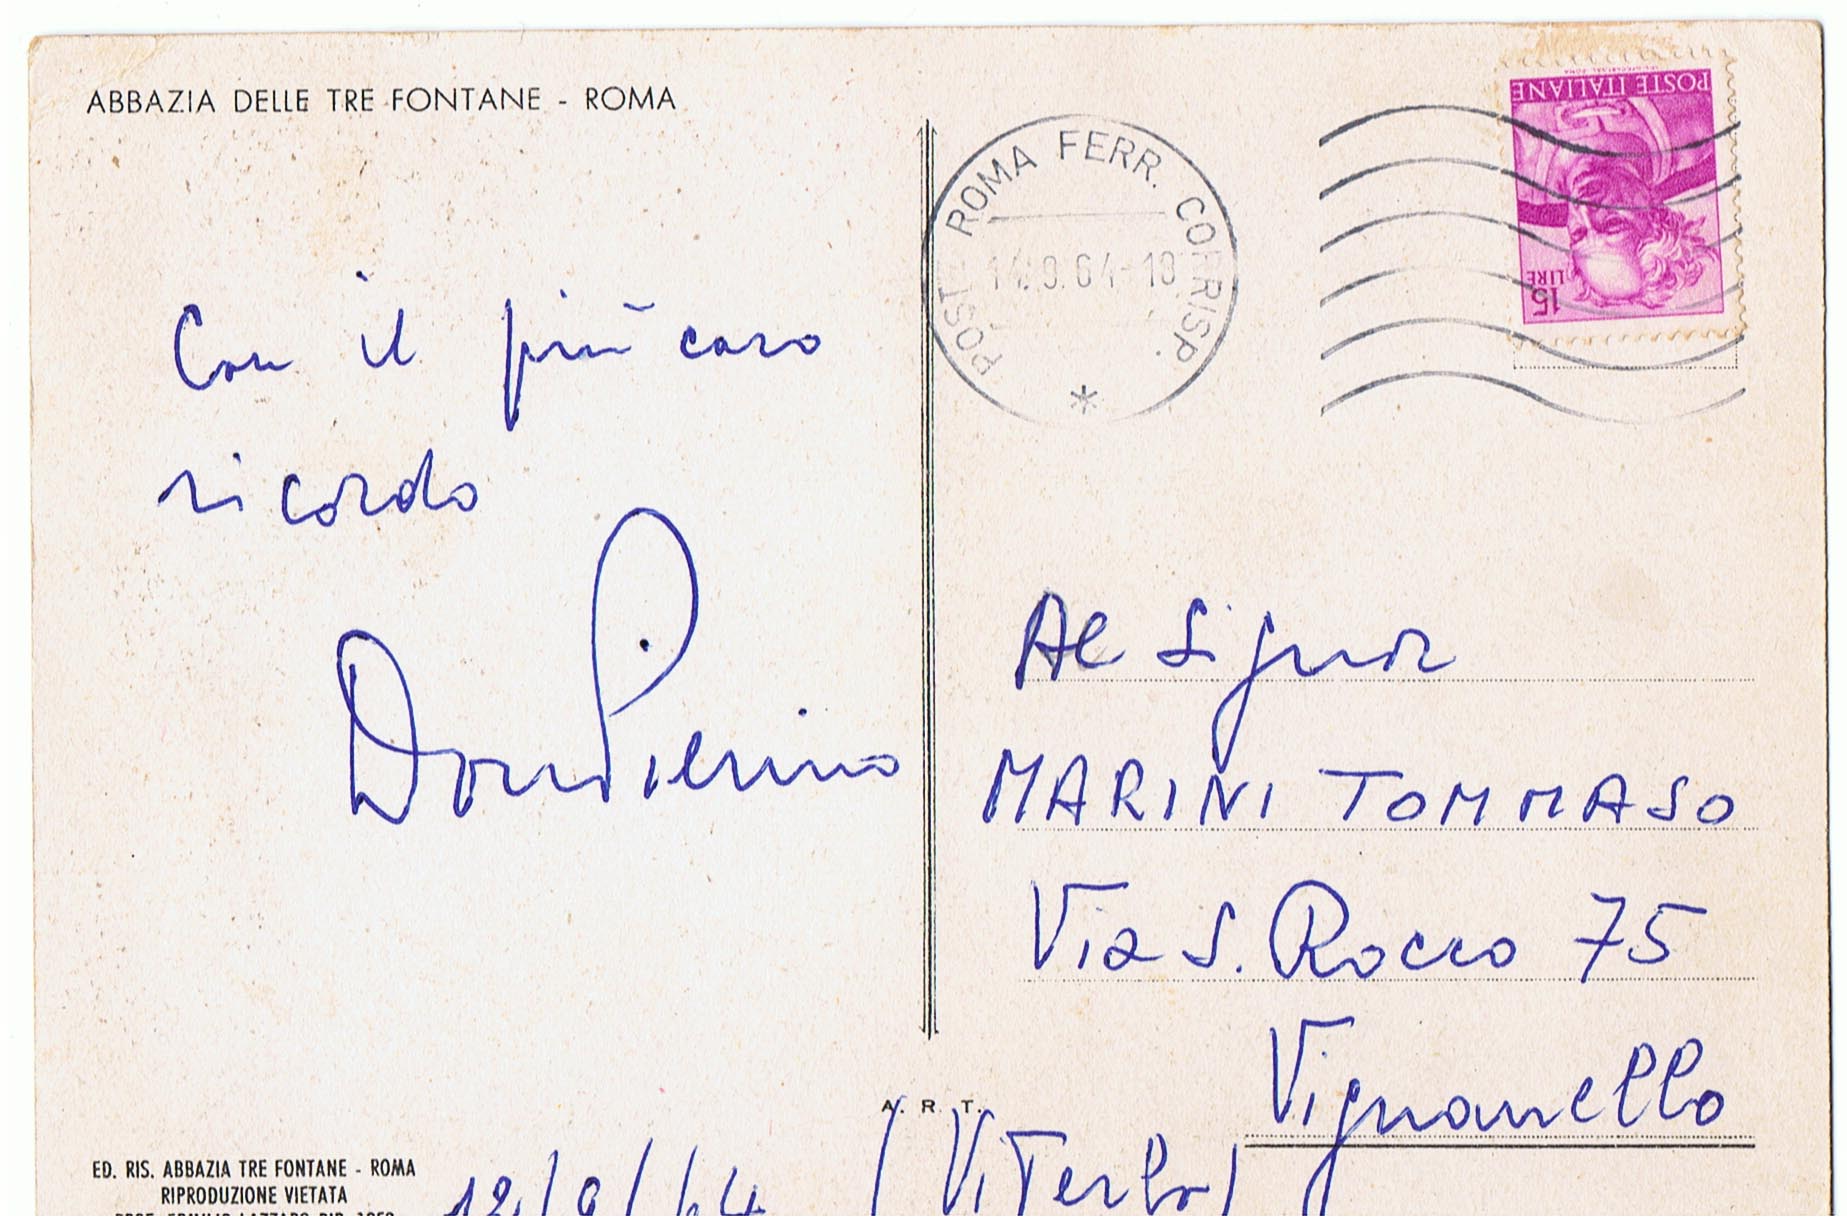 ABBAZIA DELLE TRE FONTANE - ROMA
Con il più caro
ricordo
Don Pierino
POST ROMA FERR. CORRISP.
14.9.64-18
*
POSTE ITALIANE
15
LIRE
Al Signor
MARINI TOMMASO
Via S. Rocco 75
Vignanello
(Viterbo)
A. R. T.
ED. RIS. ABBAZIA TRE FONTANE - ROMA
RIPRODUZIONE VIETATA
12/9/64